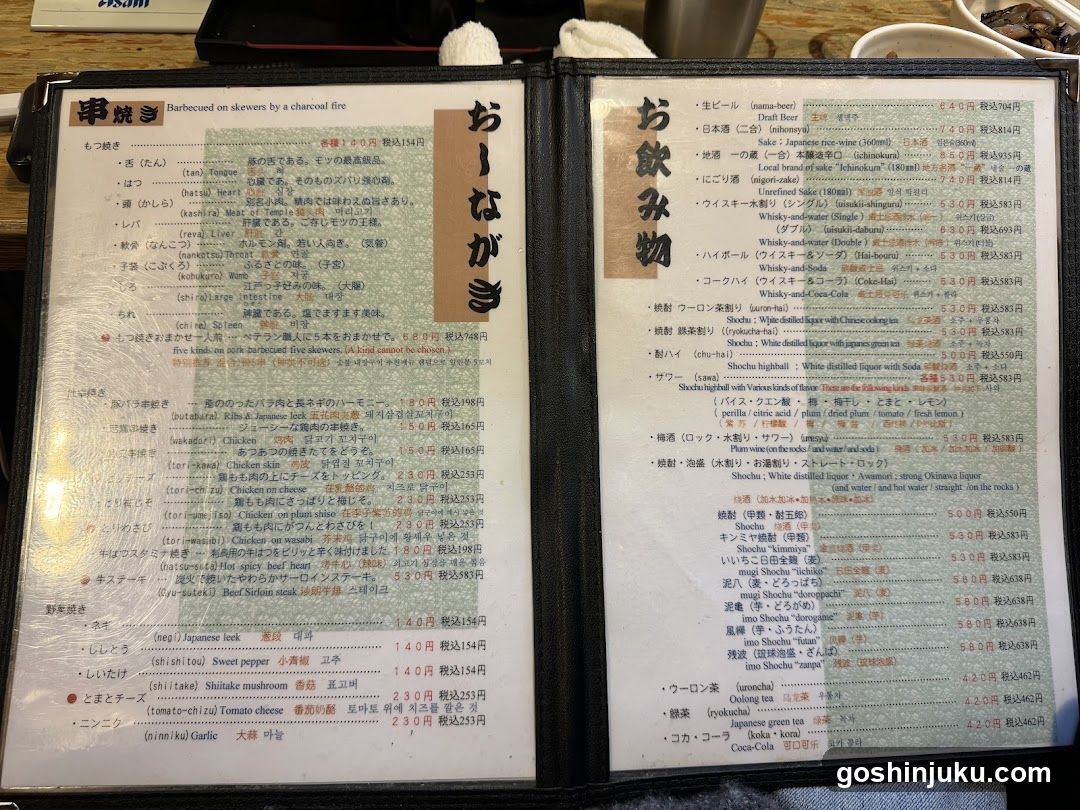 Asahi
串焼き Barbecued on skewers by a charcoal fire
おしながき
もつ焼き 各種140円 税込154円
・舌（たん） 豚の舌である。モツの最高級品。
(tan) Tongue
・はつ 心臓である。そのものズバリ強心剤。
(hatsu) Heart
・頭（かしら） 別名小肉。精肉では味わえぬ旨さあり。
(kashira) Meat of Temple
・レバ 肝臓である。ご存じモツの王様。
(reva) Liver
・軟骨（なんこつ） ホルモン剤。若い人向き。（気管）
(nankotsu) Throat
・子袋（こぶくろ） ふるさとの味。（子宮）
(kobukuro) Womb 자궁
しろ 江戸っ子好みの味。（大腸）
(shiro) Large intestine 大肠 대장
ちれ 脾臓である。塩でますます美味。
(chire) Spleen 비장
もつ焼きおまかせ一人前 ベテラン職人に５本をおまかせで。680円 税込748円
five kinds on pork barbecued five skewers. (A kind cannot be chosen)
串焼き
・豚バラ串焼き 脂ののったバラ肉と長ネギのハーモニー。180円 税込198円
(butabara) Ribs & Japanese leek 五花肉大葱 돼지삼겹살꼬치구이
若鶏串焼き ジューシーな鶏肉の串焼き。150円 税込165円
(wakadori) Chicken 鸡肉 닭고기 꼬치구이
あつあつの焼きたてをどうぞ。150円 税込165円
(tori-kawa) Chicken skin 鸡皮 닭껍질 꼬치구이
鶏もも肉の上にチーズをトッピング。230円 税込253円
(tori-chizu) Chicken on cheese 치즈로 닭구이
鶏もも肉にさっぱりと梅じそ。230円 税込253円
(tori-umejiso) Chicken on plum shiso
とりわさび 鶏もも肉にがつんとわさびを！ 230円 税込253円
(tori-wasabi) Chicken on wasabi 芥末鸡 닭구이에 황새우 넣은 것
牛はつスタミナ焼き 刺身用の牛はつをピリッと辛く味付けました。180円 税込198円
(hatsu-suta) Hot spicy beef heart
牛ステーキ 炭火で焼いたやわらかサーロインステーキ。530円 税込583円
(Gyu-suteki) Beef Sirloin steak 沙朗牛排 스테이크
野菜焼き
・ネギ 140円 税込154円
(negi) Japanese leek 葱段 대파
・ししとう 140円 税込154円
(shishitou) Sweet pepper 小青椒 고추
・しいたけ 140円 税込154円
(shiitake) Shiitake mushroom 香菇 표고버
とまとチーズ 230円 税込253円
(tomato-chizu) Tomato cheese 番茄奶酪 토마토 위에 치즈를 깔은 것
・ニンニク 230円 税込253円
(ninniku) Garlic 大蒜 마늘
お飲み物
・生ビール (nama-beer) 640円 税込704円
Draft Beer 生啤 생맥주
・日本酒（二合）(nihonsyu) 740円 税込814円
Sake : Japanese rice-wine (360ml) 日本酒 일본술(360ml)
・地酒 一の蔵（一合）本醸造辛口 (ichinokura) 850円 税込935円
Local brand of sake "Ichinokura" (180ml) 地方名酒 "一蔵"
・にごり酒 (nigori-zake) 740円 税込814円
Unrefined Sake (180ml)
・ウイスキー水割り（シングル）(uisukii-shinguru) 530円 税込583円
Whisky-and-water (Single)
（ダブル）(uisukii-daburu) 630円 税込693円
Whisky-and-water (Double)
・ハイボール（ウイスキー&ソーダ）(Hai-bouru) 530円 税込583円
Whisky-and-Soda 위스키 + 소다
・コークハイ（ウイスキー&コーラ）(Coke-Hai) 530円 税込583円
Whisky-and-Coca-Cola 위스키 + 콜라
・焼酎 ウーロン茶割り (uuron-hai) 530円 税込583円
Shochu ; White distilled liquor with Chinese oolong tea
・焼酎 緑茶割り ((ryokucha-hai) 530円 税込583円
Shochu ; White distilled liquor with japanes green tea
・酎ハイ (chu-hai) 500円 税込550円
Shochu highball ; White distilled liquor with Soda
・サワー (sawa) 各種530円 税込583円
Shochu highball with Various kinds of flavor There are the following kinds
（バイス・クエン酸・梅・梅干し・とまと・レモン）
( perilla / citric acid / plum / dried plum / tomato / fresh lemon )
・梅酒（ロック・水割り・サワー）(umesyu) 530円 税込583円
Plum wine (on the rocks / and water / and soda)
・焼酎・泡盛（水割り・お湯割り・ストレート・ロック）
Shochu ; White distilled liquor・Awamori ; strong Okinawa liquor
(and water / and hot water / straight /on the rocks )
焼酎（甲類・酎五郎） 500円 税込550円
Shochu 烧酒（甲类）
キンミヤ焼酎（甲類） 530円 税込583円
Shochu "kinmiya"
いいちこ日田全麹（麦） 530円 税込583円
mugi Shochu "iichiko" 日田全麹（麦）
泥八（麦・どろっぱち） 580円 税込638円
mugi Shochu "doroppachi" 泥八（麦）
泥亀（芋・どろがめ） 580円 税込638円
imo Shochu "dorogame" 泥亀（芋）
風樽（芋・ふうたん） 580円 税込638円
imo Shochu "futan"
残波（琉球泡盛・ざんぱ） 580円 税込638円
imo Shochu "zanpa" 残波（琉球泡盛）
・ウーロン茶 (uroncha) 420円 税込462円
Oolong tea 乌龙茶 우롱차
・緑茶 (ryokucha) 420円 税込462円
Japanese green tea 绿茶 녹차
・コカ・コーラ (koka・kora) 420円 税込462円
Coca-Cola 可口可乐 코카 콜라
goshinjuku.com